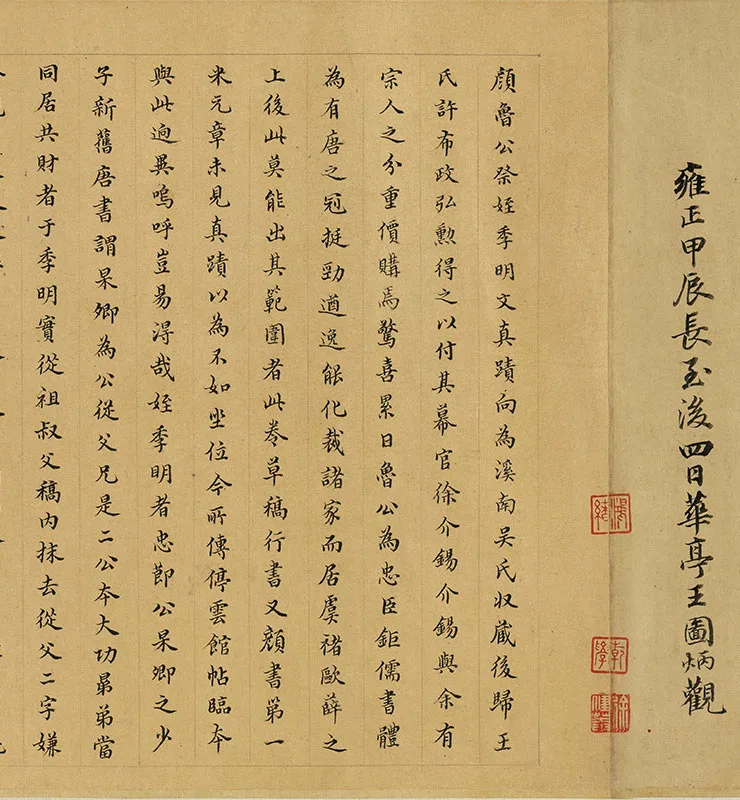 雍正甲辰長至後四日華亭王圖炳觀
顏魯公祭姪季明文真蹟向為溪南吳氏收藏後歸王
氏許布政弘勲得之以付其幕官徐介錫介錫與余有
宗人之分重價購焉驚喜累日魯公為忠臣鉅儒書體
為有唐之冠挺勁遒逸能化裁諸家而居虞禇歐薛之
上後此莫能出其範圍者此卷草稿行書又顏書第一
米元章未見真蹟以為不如坐位今所傳停雲館帖臨本
與此逈異嗚呼豈易淂哉姪季明者忠節公杲卿之少
子新舊唐書謂杲卿為公從父兄是二公本大功昴弟當
同居共財者于季明實從祖叔父稿內抹去從父二字嫌
乾學
徐健菴